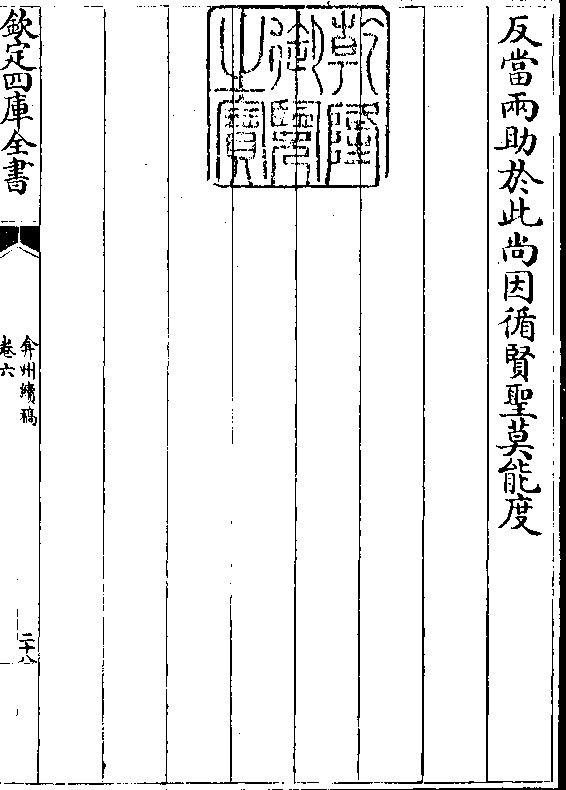 反當兩助於此尚因循賢聖莫能度
乾隆
御覽
之寶
欽定四庫全書
弇州續稿
卷六
二十八